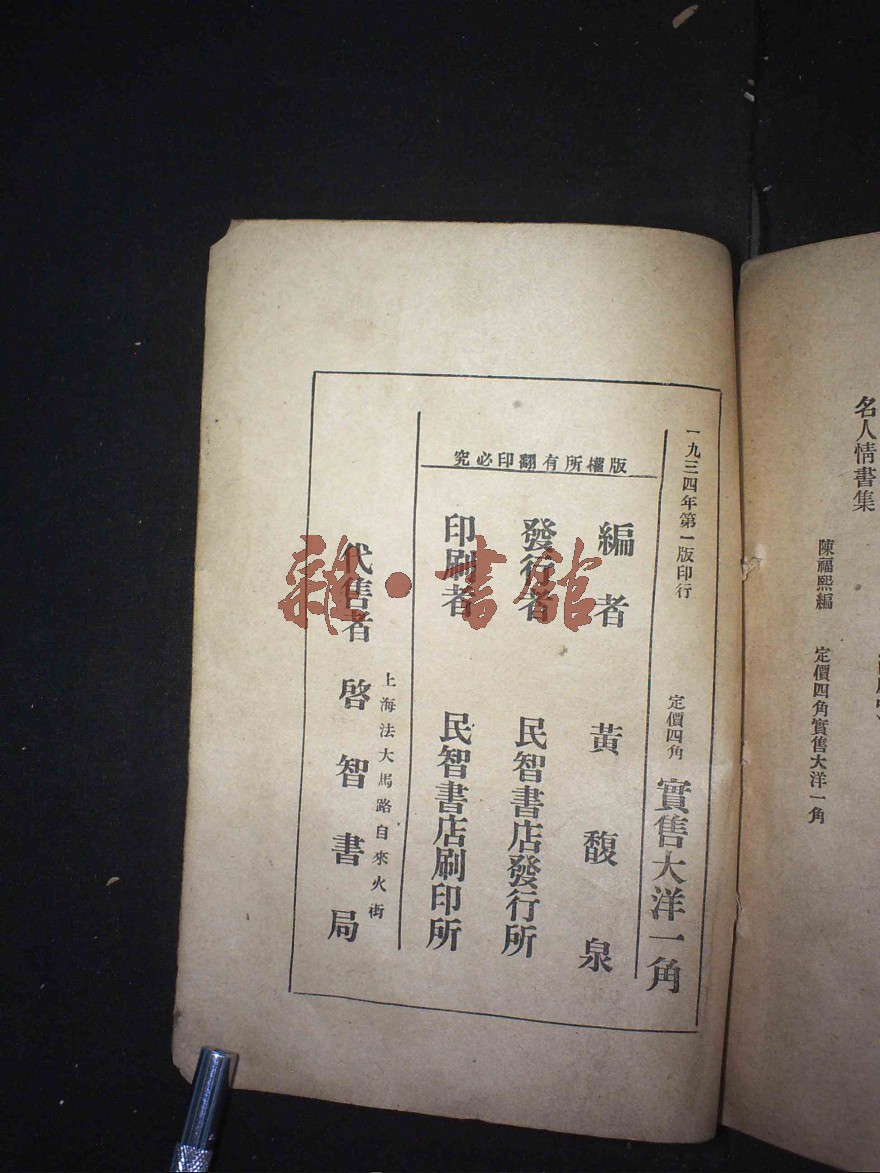 名人情書集
陳福熙編　定價四角實售大洋一角
一九三四年第一版印行
定價四角　實售大洋一角
版權所有翻印必究
編者　黃馥泉
發行者　民智書店發行所
印刷者　民智書店刷印所
上海法大馬路自來火街
代售者　啓智書局
雜·書館